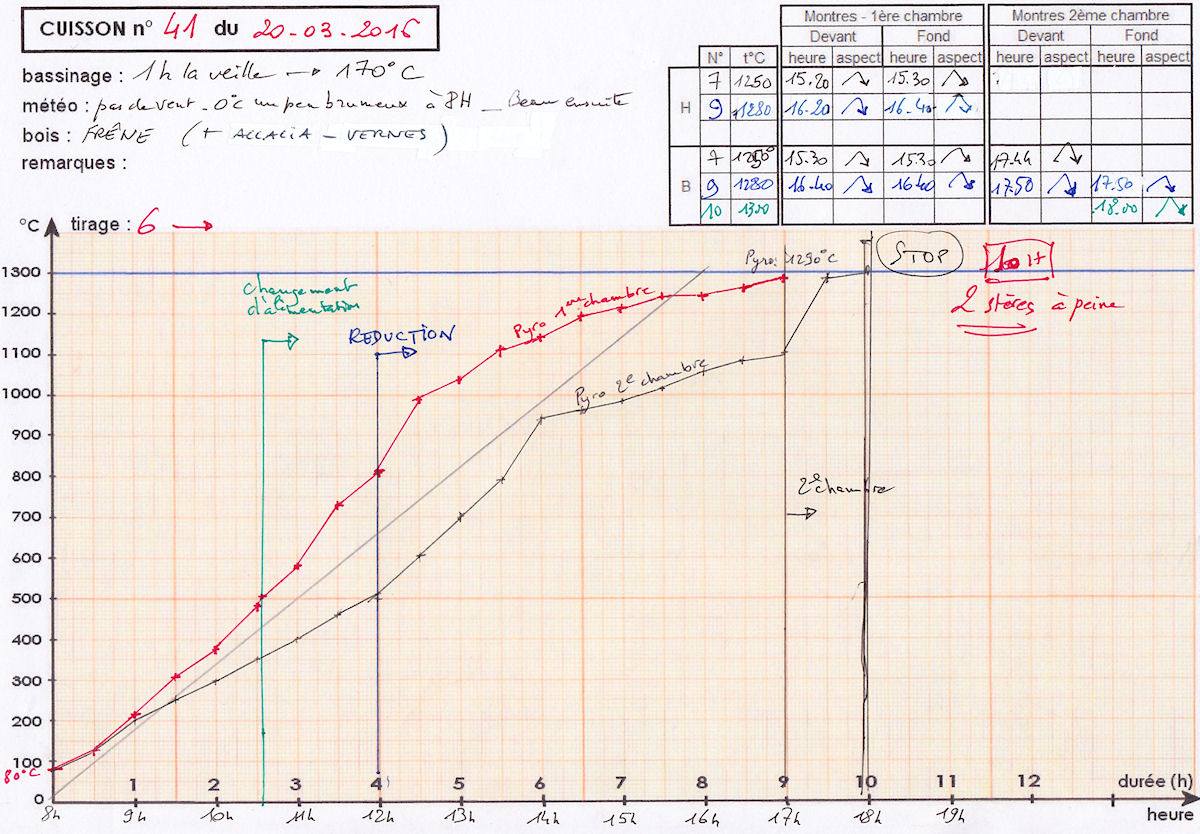 CUISSON n° 41 du 20-03-2016
bassinage : 1h la veille → 170°C
météo : pas de vent - 0°C un peu brumeux à 8H - Beau ensuite
bois : FRÊNE (+ ACCACIA - VERNES)
remarques :
Montres - 1ère chambre Montres 2ème chambre
Devant Fond Devant Fond
N° t°C heure aspect heure aspect heure aspect heure aspect
H 7 1250 15.20 15.30
9 1280 16.20 16.40
B 7 1250° 15.30 15.30 17.44
9 1280 16.40 16.40 17.50 17.50
10 1300 18.00
°C tirage : 6 →
Pyro: 1290°C
STOP
2 stères à peine
changement
d'alimentation
REDUCTION
Pyro 1ère chambre
Pyro 2e chambre
2e chambre
1300
1200
1100
1000
900
800
700
600
500
400
300
200
100
80°C
0
1 2 3 4 5 6 7 8 9 10 11 12 durée (h)
8h 9h 10h 11h 12h 13h 14h 15h 16h 17h 18h 19h heure